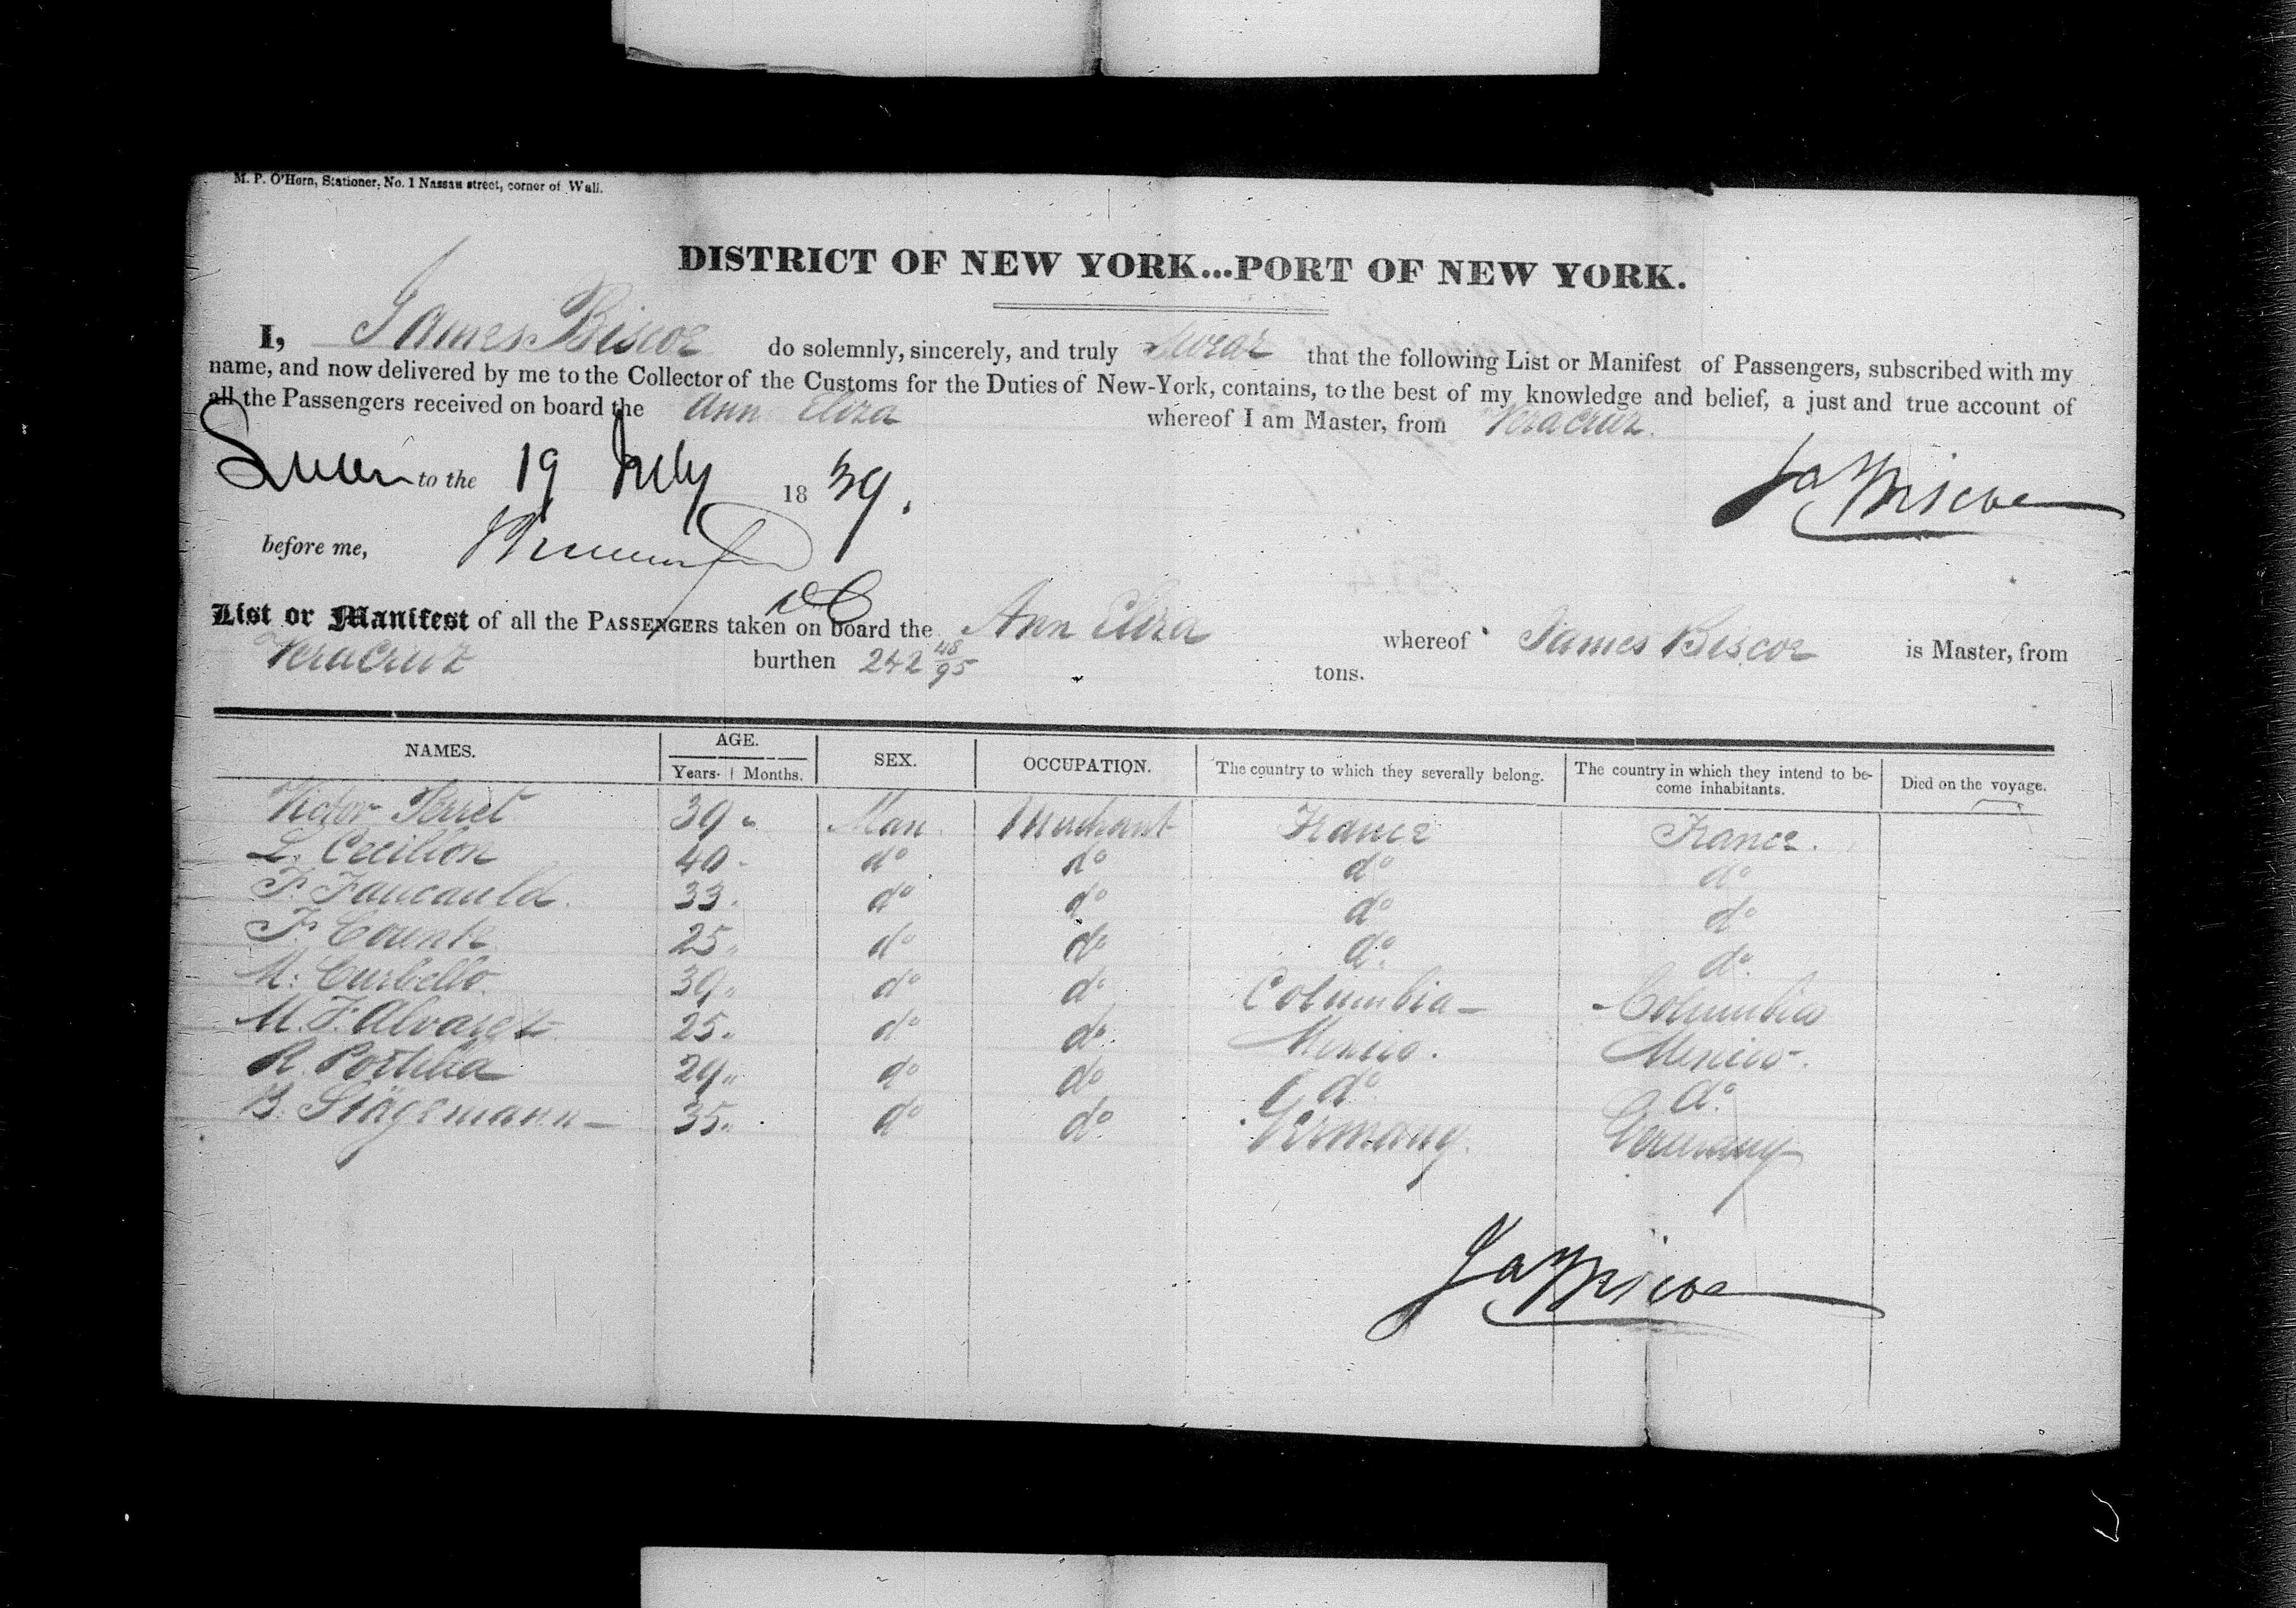 M. P. O'Horn, Stationer, No. 1 Nassau street, corner of Wall.
DISTRICT OF NEW YORK...PORT OF NEW YORK.
I, James Biscoe do solemnly, sincerely, and truly Swear that the following List or Manifest of Passengers, subscribed with my
name, and now delivered by me to the Collector of the Customs for the Duties of New-York, contains, to the best of my knowledge and belief, a just and true account of
all the Passengers received on board the Ann Eliza whereof I am Master, from Veracruz.
Sworn to the 19 July 1839. Jas Biscoe
before me,
List or Manifest of all the PASSENGERS taken on board the Ann Eliza whereof James Biscoe is Master, from
Veracruz burthen 242 48/95 tons.
NAMES. AGE. SEX. OCCUPATION. The country to which they severally belong. The country in which they intend to be- Died on the voyage.
Years. Months. come inhabitants.
Victor Perret 39 " Man Merchant France France.
L. Cecilion 40 " do do do do
F. Faucauld. 33. do do do do
F. Counte 25 " do do do. do.
M. Curbello. 39 " do do Columbia - Columbia
M. F. Alvarez 25 " do do. Mexico. Mexico.
R. Portilla 29 " do do do do.
B. Stägemann - 35 " do do Germany. Germany
Jas Biscoe